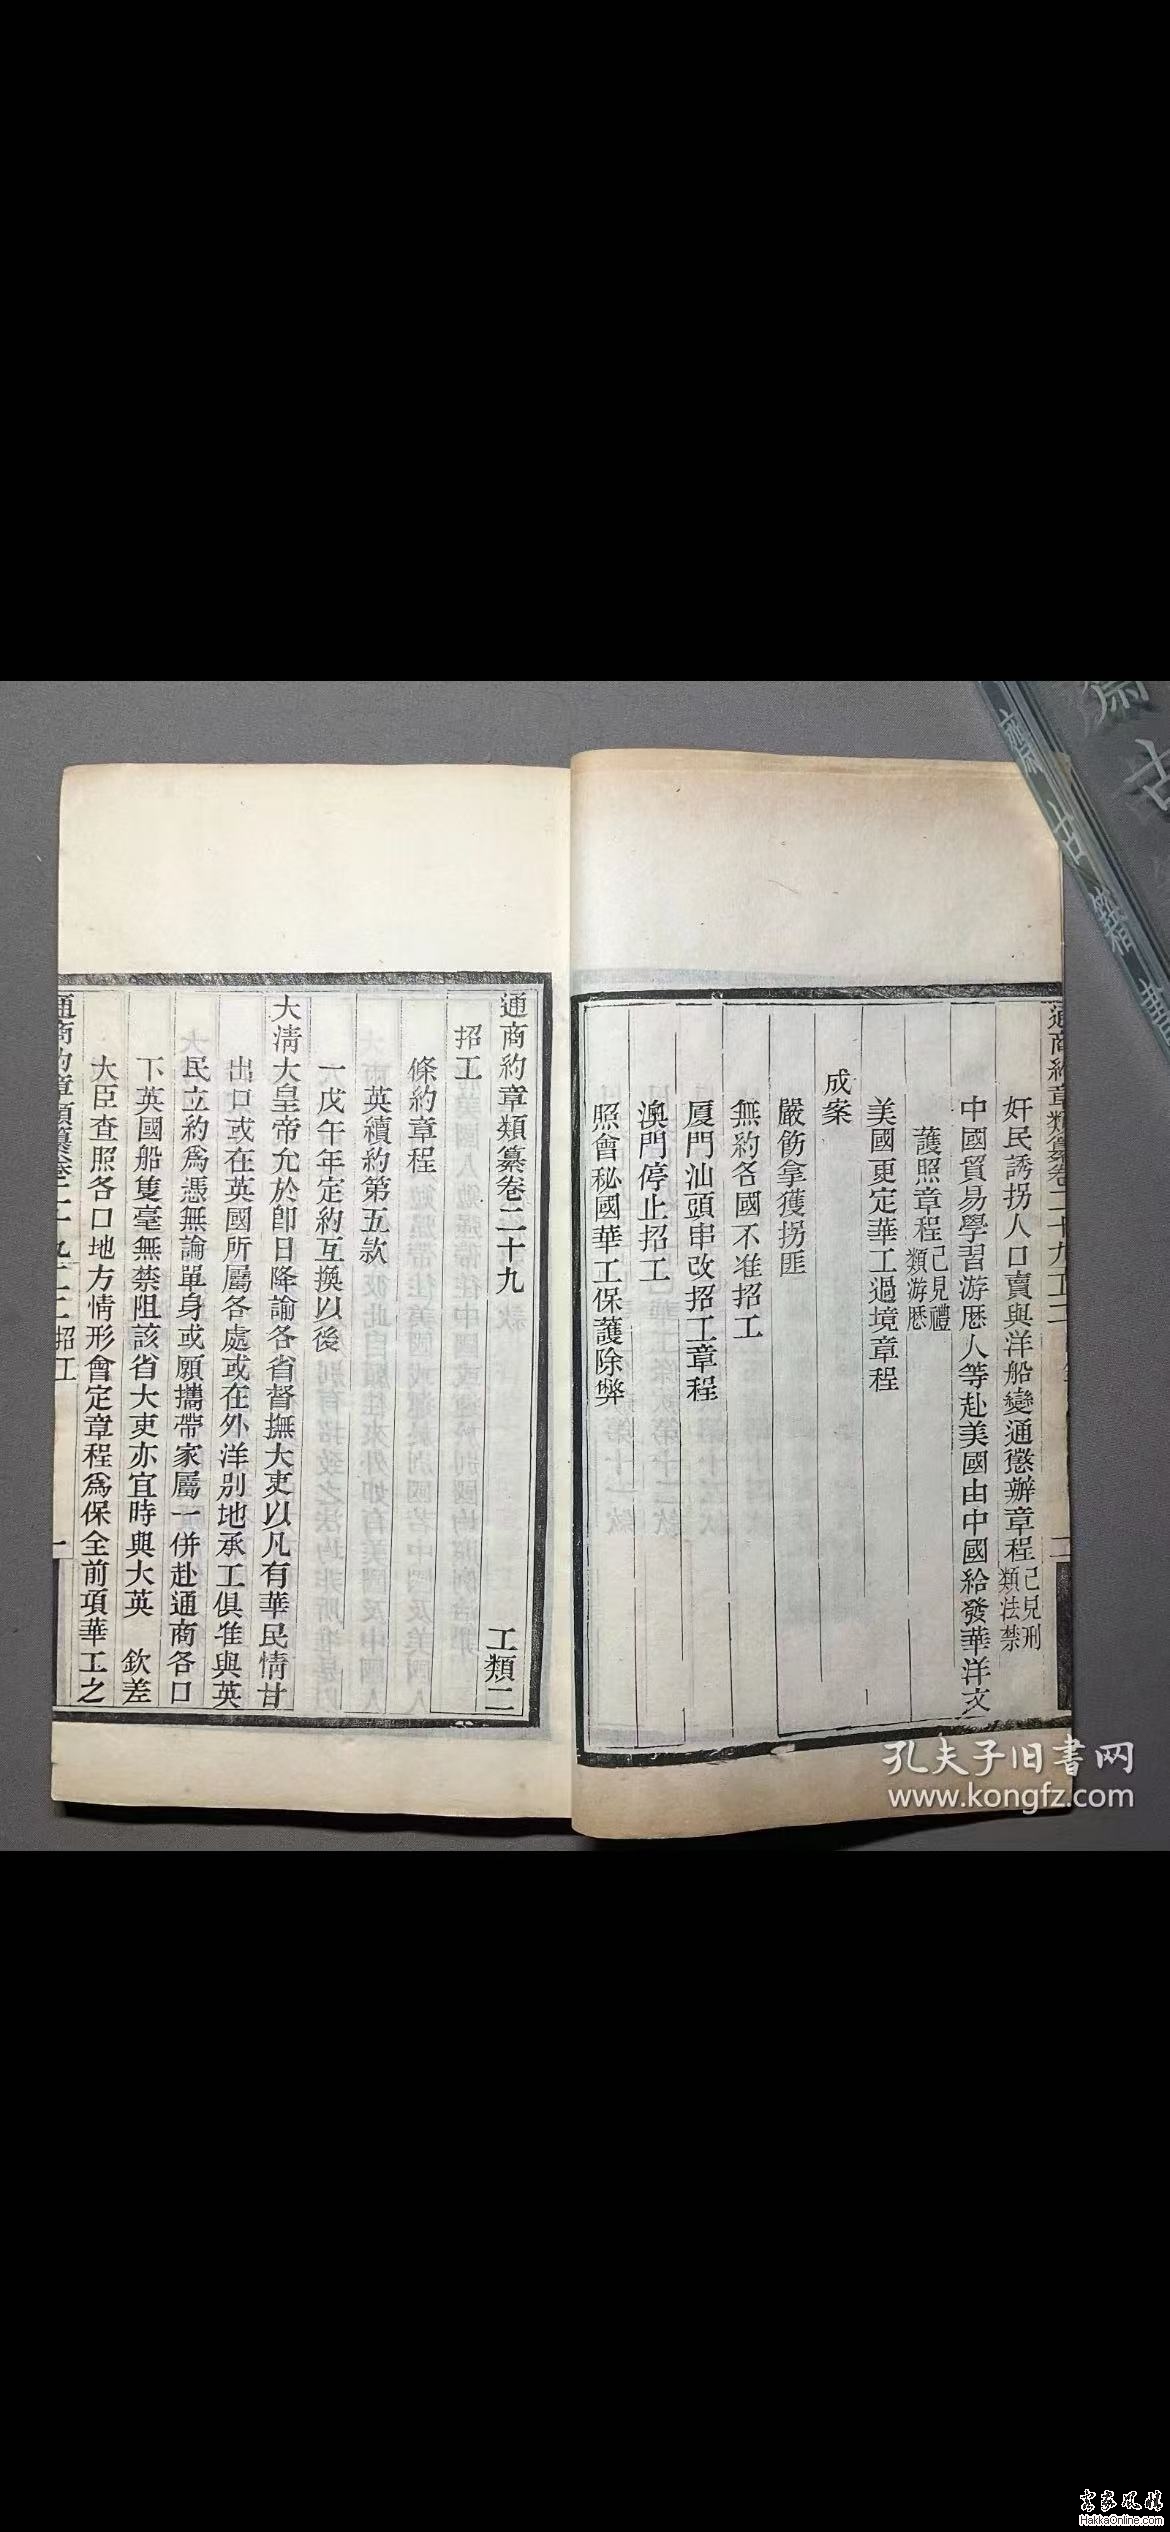 通商約章類纂卷二十九工二
奸民誘拐人口賣與洋船變通懲辦章程已見刑類法禁
中國貿易學習游歷人等赴美國由中國給發華洋文
護照章程已見禮類游歷
美國更定華工過境章程
成案
嚴飭拿獲拐匪
無約各國不准招工
厦門汕頭串改招工章程
澳門停止招工
照會秘國華工保護除弊
二
通商約章類纂卷二十九
工類二
招工
條約章程
英續約第五款
一戊午年定約互換以後
大清大皇帝允於即日降諭各省督撫大吏以凡有華民情甘
出口或在英國所屬各處或在外洋別地承工俱准與英
民立約為憑無論單身或願攜帶家屬一併赴通商各口
下英國船隻毫無禁阻該省大吏亦宜時與大英 欽差
大臣查照各口地方情形會定章程為保全前項華工之
通商約章類纂卷二十九工二招工
一
孔夫子旧書网
www.kongfz.com
古籍書
客家風情
HakkaOnline.com